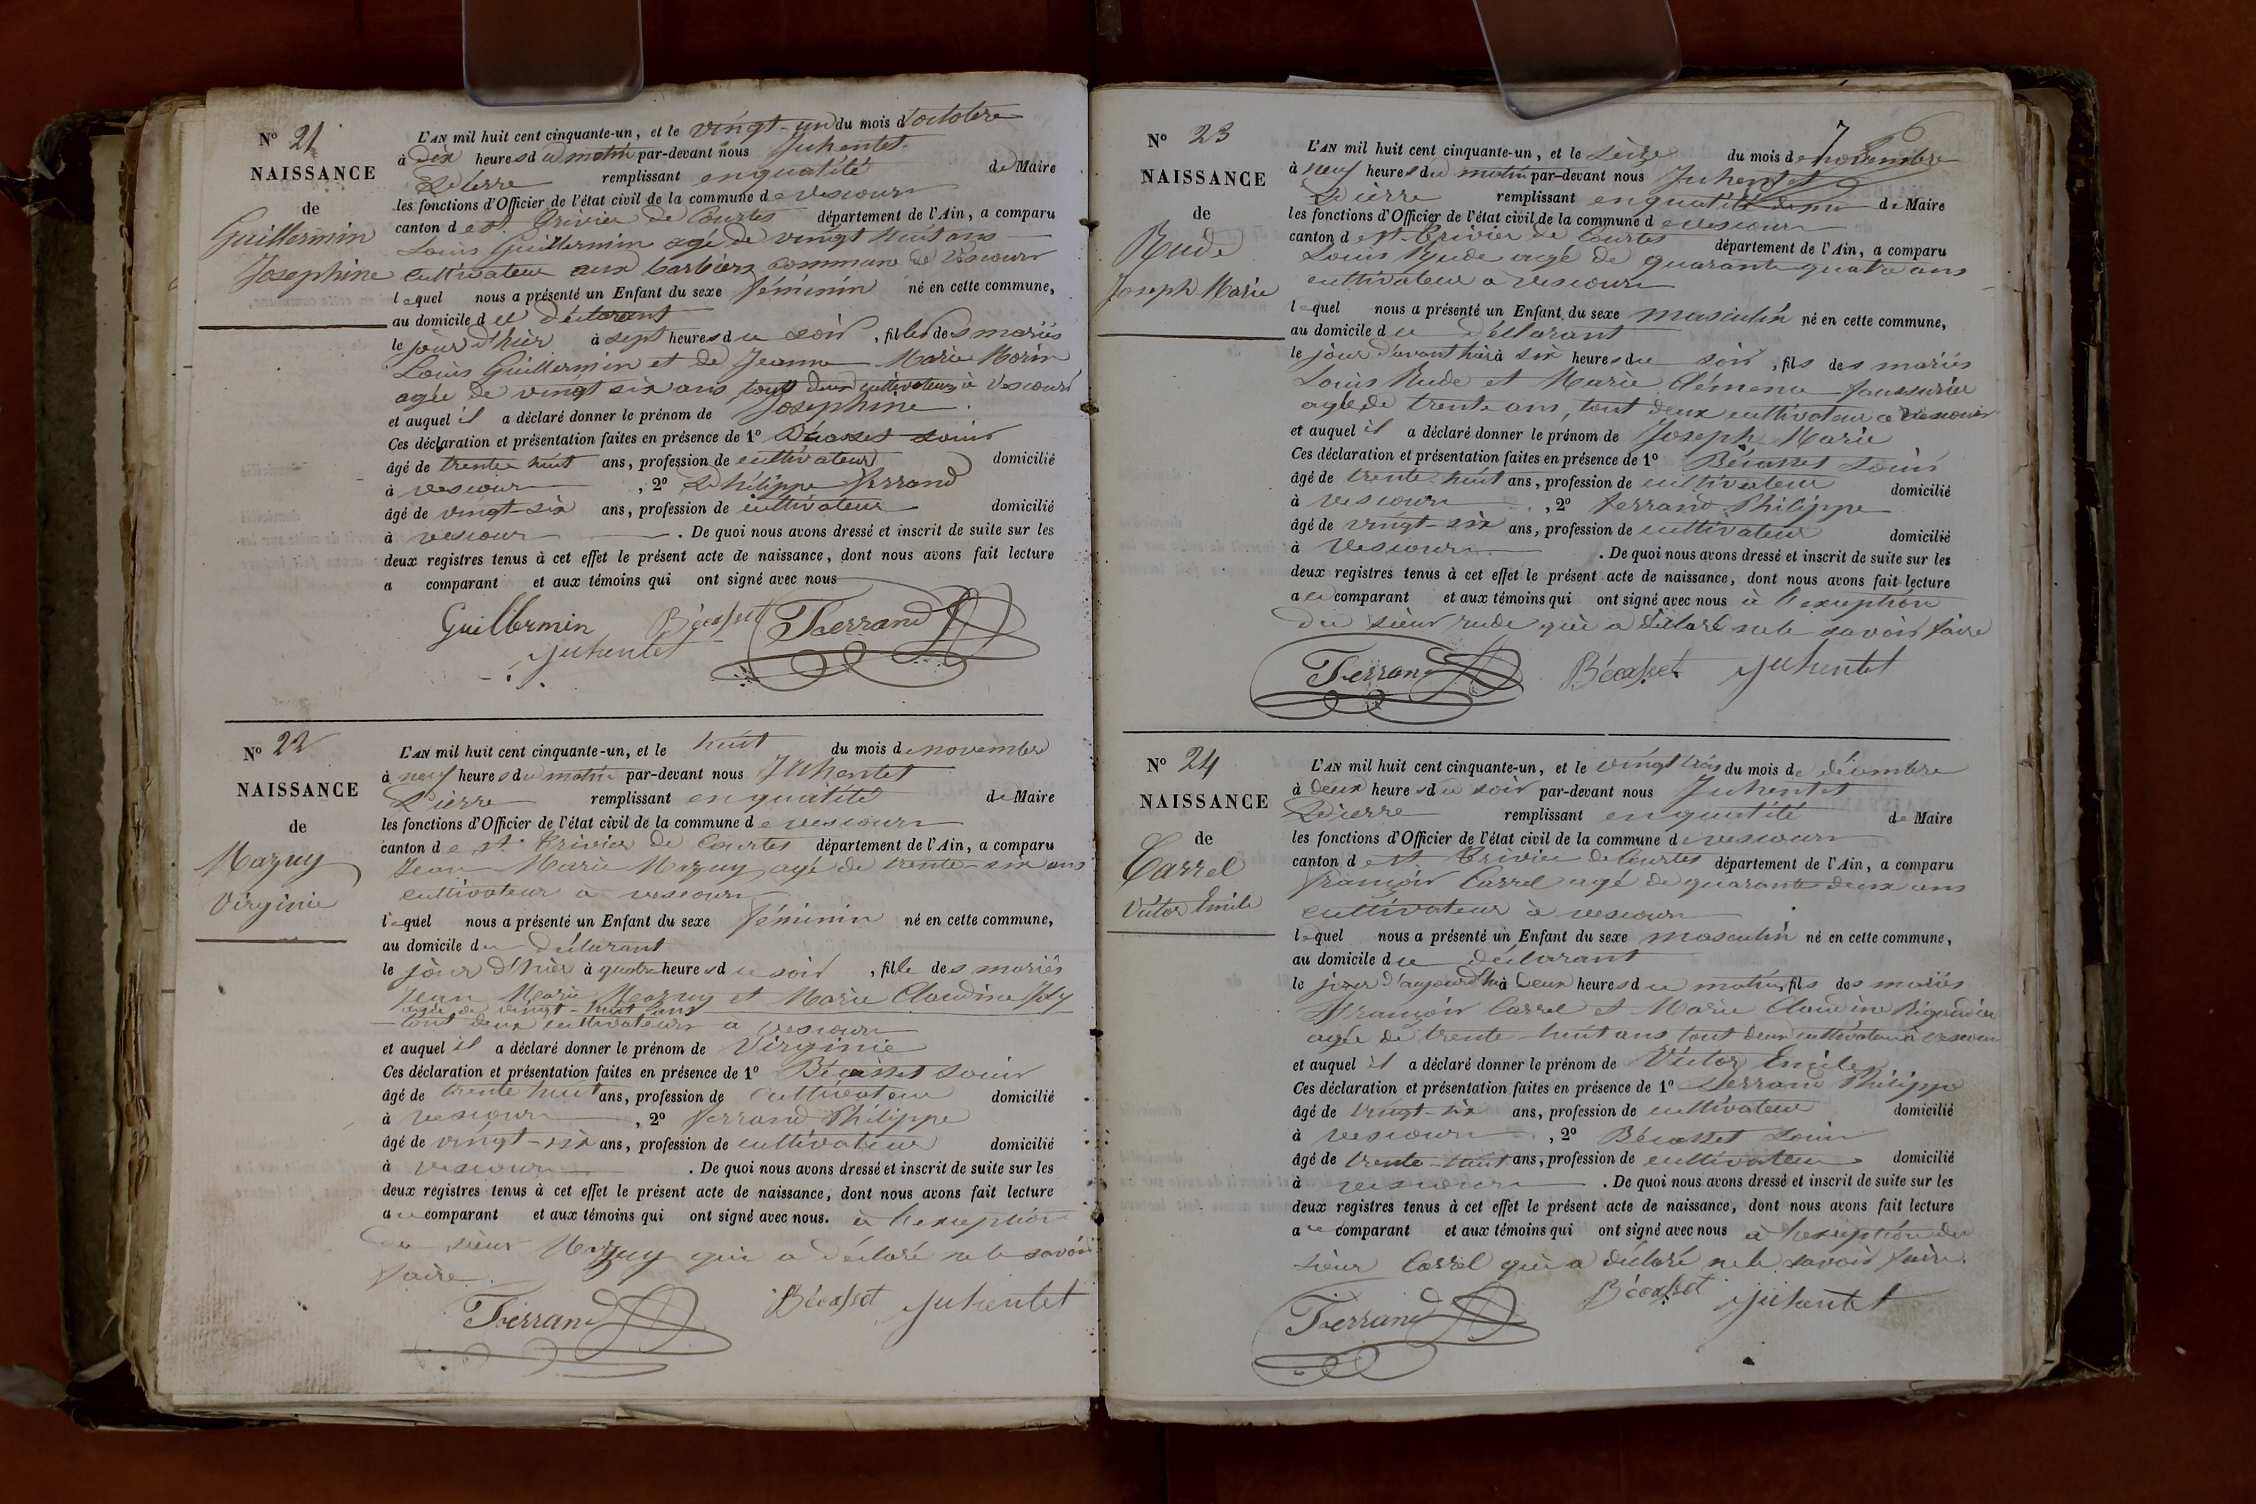 N° 21
NAISSANCE
de
Guillermin
Josephine
L'AN mil huit cent cinquante-un, et le vingt-un du mois d'octobre
à dix heures du matin par-devant nous Juhentet
Pierre remplissant en qualité de Maire
les fonctions d'Officier de l'état civil de la commune de vescours
canton de st. Trivier de Courtes département de l'Ain, a comparu
Louis Guillermin agé de vingt huit ans
cultivateur aux barbiers commune de Vescours
lequel nous a présenté un Enfant du sexe féminin né en cette commune,
au domicile du déclarant
le jour d'hier à sept heures du soir, fille des mariés
Louis Guillermin et de Jeanne Marie Morin
agée de vingt six ans, tout deux cultivateurs à Vescours
et auquel il a déclaré donner le prénom de Josephine.
Ces déclaration et présentation faites en présence de 1° Bécasset Louis
âgé de trente huit ans, profession de cultivateur domicilié
à vescours, 2° Philippe Ferrand
âgé de vingt-six ans, profession de cultivateur domicilié
à vescours. De quoi nous avons dressé et inscrit de suite sur les
deux registres tenus à cet effet le présent acte de naissance, dont nous avons fait lecture
a comparant et aux témoins qui ont signé avec nous
Guillermin Bécasset Ferrand
Juhentet
N° 22
NAISSANCE
de
Mazuy
Virginie
L'AN mil huit cent cinquante-un, et le huit du mois de novembre
à neuf heures du matin par-devant nous Juhentet
Pierre remplissant en qualité de Maire
les fonctions d'Officier de l'état civil de la commune de vescours
canton de st. Trivier de Courtes département de l'Ain, a comparu
Jean Marie Mazuy agé de trente-six ans
cultivateur a vescours
lequel nous a présenté un Enfant du sexe féminin né en cette commune,
au domicile du déclarant
le jour d'hier à quatre heures du soir, fille des mariés
Jean Marie Mazuy et Marie Claudine
agée de vingt-huit ans
tout deux cultivateurs a vescours
et auquel il a déclaré donner le prénom de Virginie
Ces déclaration et présentation faites en présence de 1° Bécasset Louis
âgé de trente huit ans, profession de cultivateur domicilié
à vescours, 2° Ferrand Philippe
âgé de vingt-six ans, profession de cultivateur domicilié
à vescours. De quoi nous avons dressé et inscrit de suite sur les
deux registres tenus à cet effet le présent acte de naissance, dont nous avons fait lecture
au comparant et aux témoins qui ont signé avec nous. à l'exception
du sieur Mazuy qui a déclaré ne le savoir
faire.
Ferrand Bécasset Juhentet
7
N° 23
NAISSANCE
de
Rude
Joseph Marie
L'AN mil huit cent cinquante-un, et le seize du mois de novembre
à neuf heures du matin par-devant nous Juhentet
Pierre remplissant en qualité de Maire
les fonctions d'Officier de l'état civil de la commune de vescours
canton de st. Trivier de Courtes département de l'Ain, a comparu
Louis Rude agé de quarante quatre ans
cultivateur a vescours
lequel nous a présenté un Enfant du sexe masculin né en cette commune,
au domicile du déclarant
le jour d'avant hier à six heures du soir, fils des mariés
Louis Rude et Marie Clémence
agée de trente ans, tout deux cultivateur a vescours
et auquel il a déclaré donner le prénom de Joseph Marie
Ces déclaration et présentation faites en présence de 1° Bécasset Louis
âgé de trente huit ans, profession de cultivateur domicilié
à vescours, 2° Ferrand Philippe
âgé de vingt-six ans, profession de cultivateur domicilié
à Vescours. De quoi nous avons dressé et inscrit de suite sur les
deux registres tenus à cet effet le présent acte de naissance, dont nous avons fait lecture
au comparant et aux témoins qui ont signé avec nous à l'exception
du sieur rude qui a déclaré ne le savoir faire
Ferrand Bécasset Juhentet
N° 24
NAISSANCE
de
Carrel
Victor Emile
L'AN mil huit cent cinquante-un, et le vingt trois du mois de décembre
à deux heures du soir par-devant nous Juhentet
Pierre remplissant en qualité de Maire
les fonctions d'Officier de l'état civil de la commune de vescours
canton de st Trivier de Courtes département de l'Ain, a comparu
françois Carrel agé de quarante deux ans
cultivateur à vescours
lequel nous a présenté un Enfant du sexe masculin né en cette commune,
au domicile du déclarant
le jour d'aujourd'hui à deux heures du matin, fils des mariés
françois Carrel et Marie Claudine
agée de trente-huit ans tout deux cultivateur à vescours
et auquel il a déclaré donner le prénom de Victor Emile
Ces déclaration et présentation faites en présence de 1° Ferrand Philippe
âgé de vingt-six ans, profession de cultivateur domicilié
à vescours, 2° Bécasset Louis
âgé de trente-huit ans, profession de cultivateur domicilié
à vescours. De quoi nous avons dressé et inscrit de suite sur les
deux registres tenus à cet effet le présent acte de naissance, dont nous avons fait lecture
au comparant et aux témoins qui ont signé avec nous à l'exception du
sieur Carrel qui a déclaré ne le savoir faire.
Ferrand Bécasset Juhentet